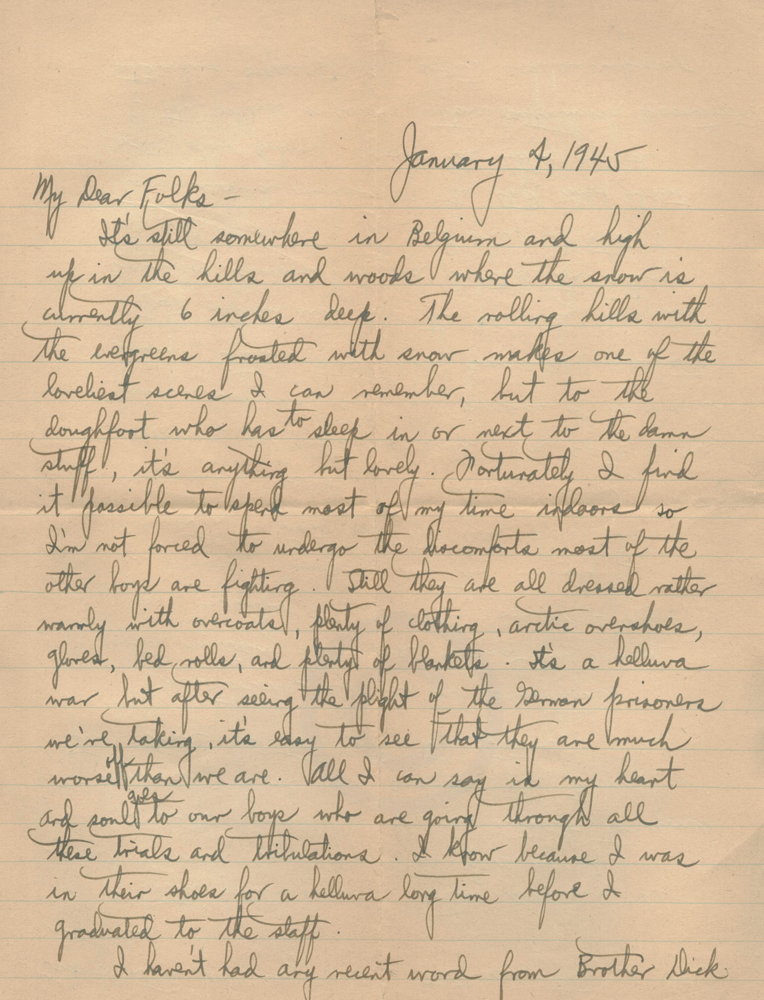 January 4, 1945
My Dear Folks -
It's still somewhere in Belgium and high
up in the hills and woods where the snow is
currently 6 inches deep. The rolling hills with
the evergreens frosted with snow makes one of the
loveliest scenes I can remember, but to the
doughfoot who has to sleep in or next to the damn
stuff, it's anything but lovely. Fortunately I find
it possible to spend most of my time indoors so
I'm not forced to undergo the discomforts most of the
other boys are fighting. Still they are all dressed rather
warmly with overcoats, plenty of clothing, arctic overshoes,
gloves, bed rolls, and plenty of blankets. It's a helluva
war but after seeing the plight of the German prisoners
we're taking, it's easy to see that they are much
worse off than we are. All I can say is my heart
and soul goes to our boys who are going through all
these trials and tribulations. I know because I was
in their shoes for a helluva long time before I
graduated to the staff.
I haven't had any recent word from Brother Dick